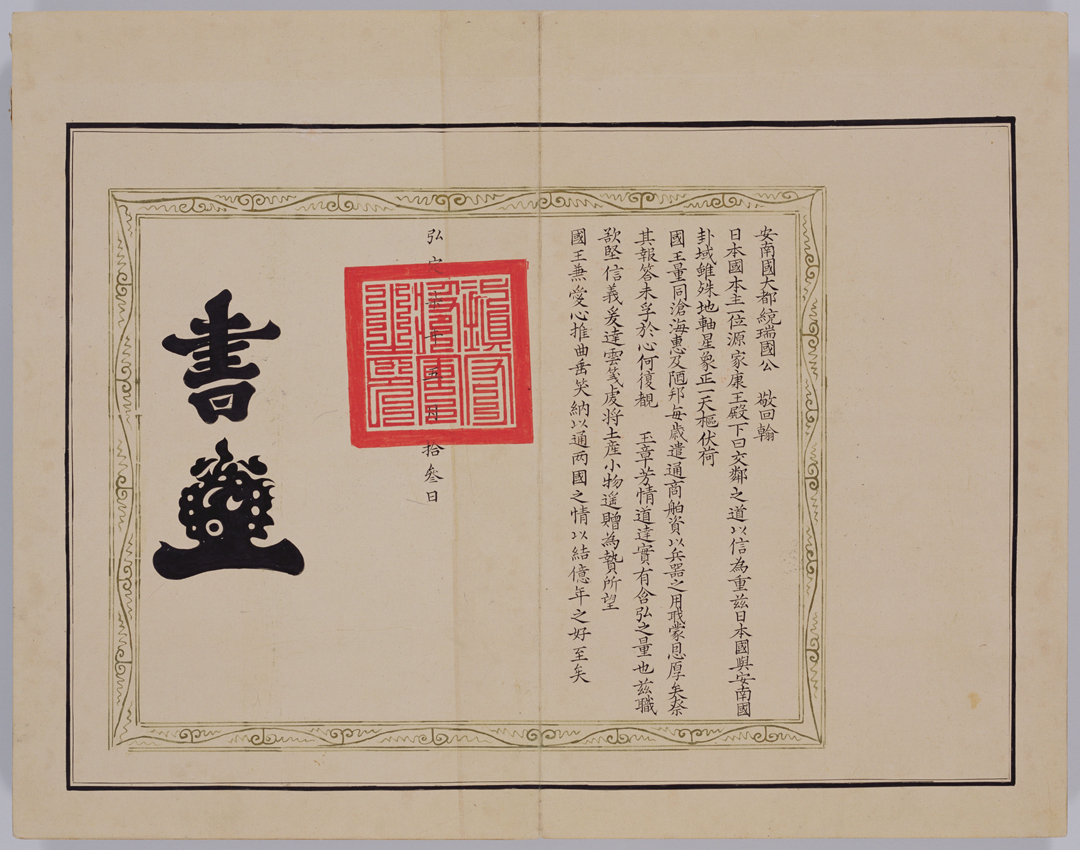 安南國大都統瑞國公　敬回翰
日本國本主一位源家康王殿下曰交鄰之道以信為重茲日本國與安南國
卦域雖殊地軸星象正一天樞伏荷
國王量同滄海惠及陋邦每歲遣通商舶資以兵器之用戢蒙恩厚矣柰
其報答未孚於心何復觀　玉章芳情道達實有含弘之量也茲職
欲堅信義爰達雲箋虔將土産小物遥贈為贄所望
國王兼愛心推曲垂笑納以通两國之情以結億年之好至矣
弘定 年五月拾叁日
書